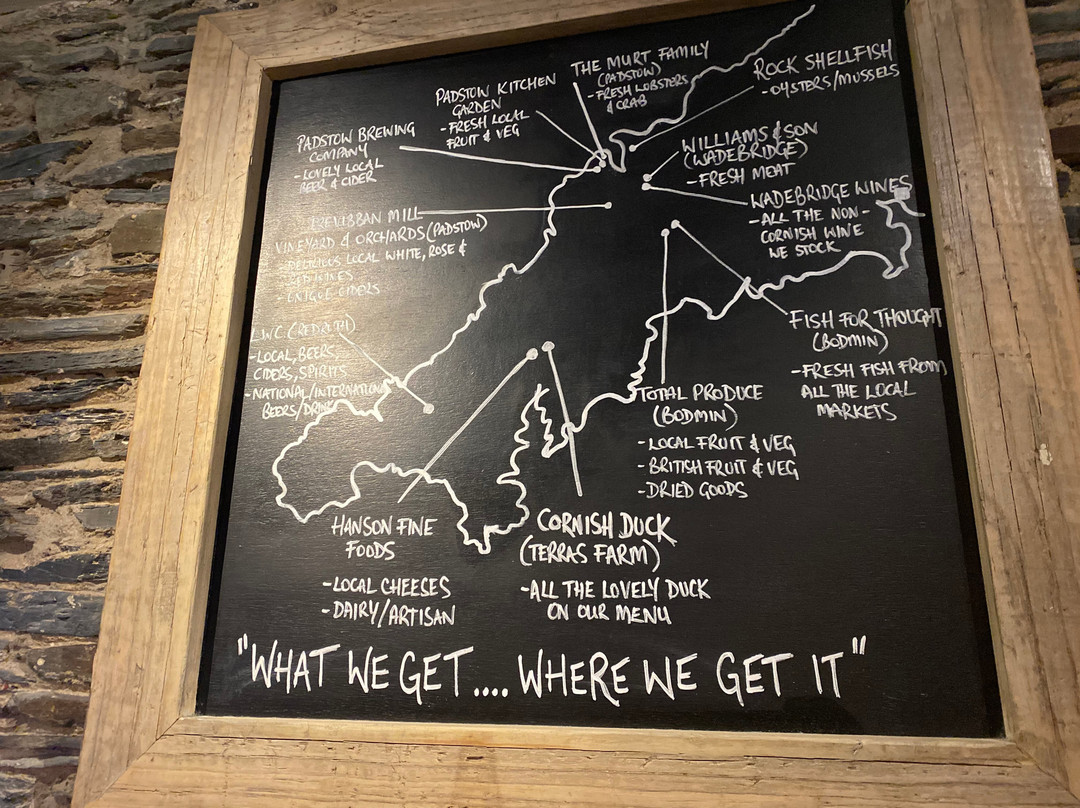 THE MURT FAMILY
(PADSTOW)
- FRESH LOBSTERS
& CRAB
ROCK SHELLFISH
- OYSTERS/MUSSELS
PADSTOW KITCHEN
GARDEN
- FRESH LOCAL
FRUIT & VEG
PADSTOW BREWING
COMPANY
- LOVELY LOCAL
BEER & CIDER
WILLIAMS & SON
(WADEBRIDGE)
- FRESH MEAT
WADEBRIDGE WINES
- ALL THE NON-
CORNISH WINE
WE STOCK
MILL
VINEYARD & ORCHARDS (PADSTOW)
DELICIOUS LOCAL WHITE, ROSE &
RED WINES
CIDERS
L.W.C. (REDRUTH)
- LOCAL, BEERS,
CIDERS, SPIRITS
- NATIONAL/INTERNATIONAL
BEERS/DRINKS
FISH FOR THOUGHT
(BODMIN)
- FRESH FISH FROM
ALL THE LOCAL
MARKETS
TOTAL PRODUCE
(BODMIN)
- LOCAL FRUIT & VEG
- BRITISH FRUIT & VEG
- DRIED GOODS
HANSON FINE
FOODS
- LOCAL CHEESES
- DAIRY/ARTISAN
CORNISH DUCK
(TERRAS FARM)
- ALL THE LOVELY DUCK
ON OUR MENU
"WHAT WE GET.... WHERE WE GET IT"